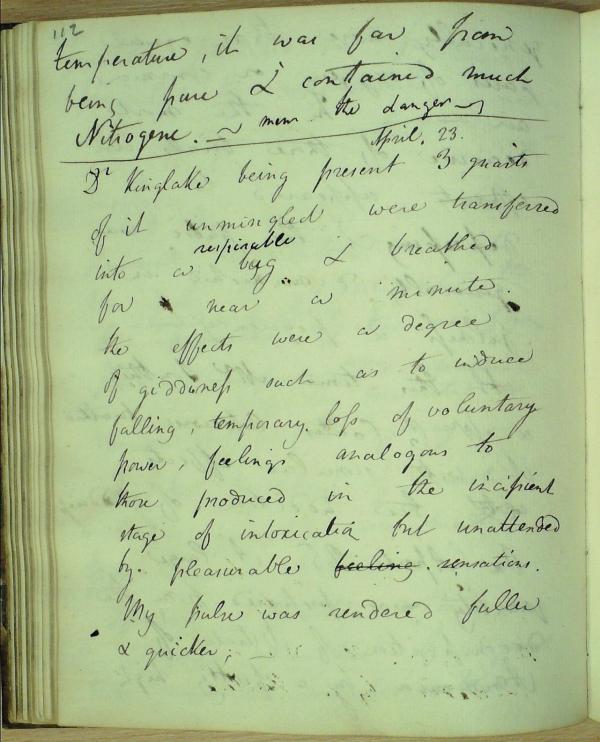 112
temperature, it was far from
being pure & contained much
Nitrogene. — mem. the danger —
April. 23.
Dr Kinglake being present 3 quarts
of it unmingled were transferred
respirable
into a bag & breathed
for near a minute.
the effects were a degree
of giddiness such as to induce
falling, temporary loss of voluntary
power, feelings analogous to
those produced in the incipient
stage of intoxication but unattended
by. pleasurable feeling. sensations.
My pulse was rendered fuller
& quicker; —